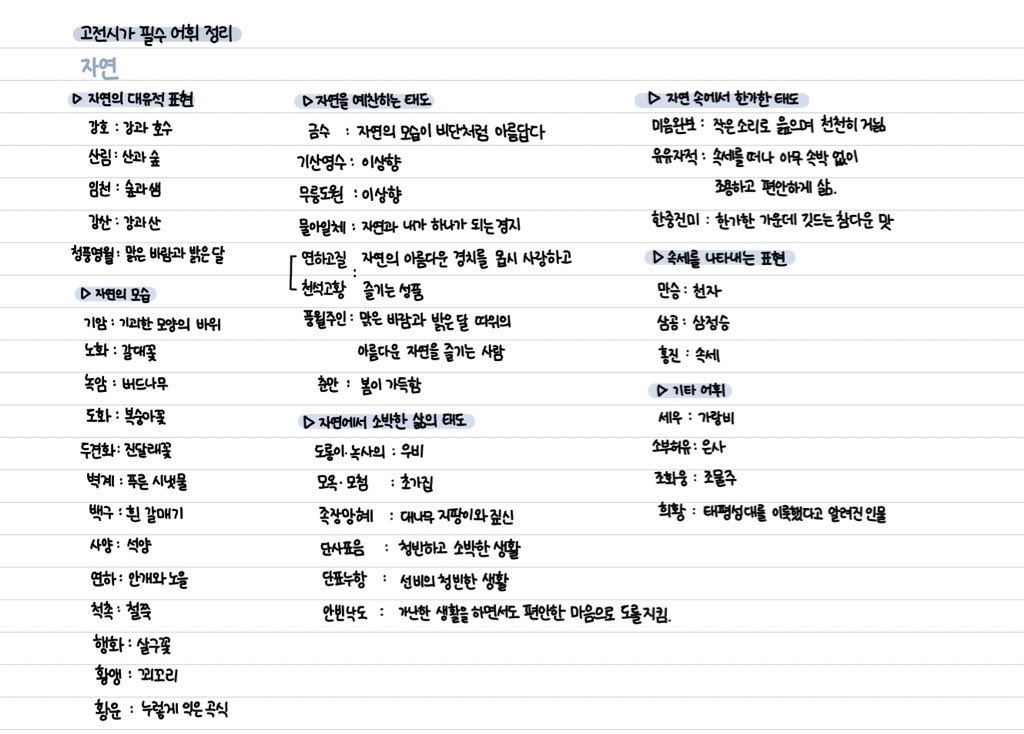 고전시가 필수 어휘 정리
자연
▷ 자연의 대유적 표현
강호 : 강과 호수
산림 : 산과 숲
임천 : 숲과 샘
강산 : 강과 산
청풍명월 : 맑은 바람과 밝은 달
▷ 자연의 모습
기암 : 기괴한 모양의 바위
노화 : 갈대꽃
녹암 : 버드나무
도화 : 복숭아꽃
두견화 : 진달래꽃
벽계 : 푸른 시냇물
백구 : 흰 갈매기
사양 : 석양
연하 : 안개와 노을
척촉 : 철쭉
행화 : 살구꽃
황앵 : 꾀꼬리
황운 : 누렇게 익은 곡식
▷ 자연을 예찬하는 태도
금수 : 자연의 모습이 비단처럼 아름답다
기산영수 : 이상향
무릉도원 : 이상향
물아일체 : 자연과 내가 하나가 되는 경지
연하고질 자연의 아름다운 경치를 몹시 사랑하고
:
천석고황 즐기는 성품
풍월주인 : 맑은 바람과 밝은 달 따위의
아름다운 자연을 즐기는 사람
춘만 : 봄이 가득함
▷ 자연에서 소박한 삶의 태도
도롱이·녹사의 : 우비
모옥·모첨 : 초가집
죽장망혜 : 대나무 지팡이와 짚신
단사표음 : 청빈하고 소박한 생활
단표누항 : 선비의 청빈한 생활
안빈낙도 : 가난한 생활을 하면서도 편안한 마음으로 도를 지킴.
▷ 자연 속에서 한가한 태도
미음완보 : 작은 소리로 읊으며 천천히 거닒
유유자적 : 속세를 떠나 아무 속박 없이
조용하고 편안하게 삶.
한중진미 : 한가한 가운데 깃드는 참다운 맛
▷ 속세를 나타내는 표현
만승 : 천자
삼공 : 삼정승
홍진 : 속세
▷ 기타 어휘
세우 : 가랑비
소부허유 : 은사
조화옹 : 조물주
희황 : 태평성대를 이룩했다고 알려진 인물